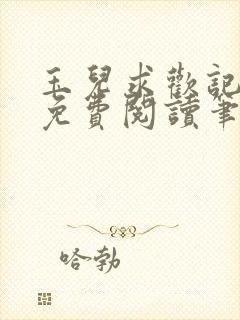 玉兒求歡記
免費閱讀筆
哈勃